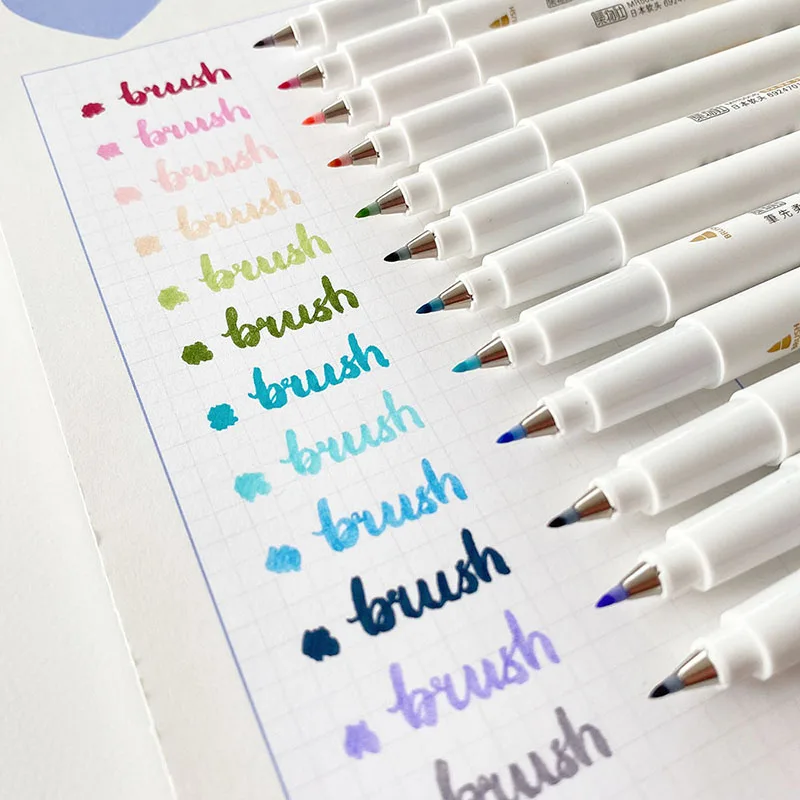 brush
brush
brush
brush
brush
brush
brush
brush
brush
brush
brush
brush
日本软头
日本软头 692470